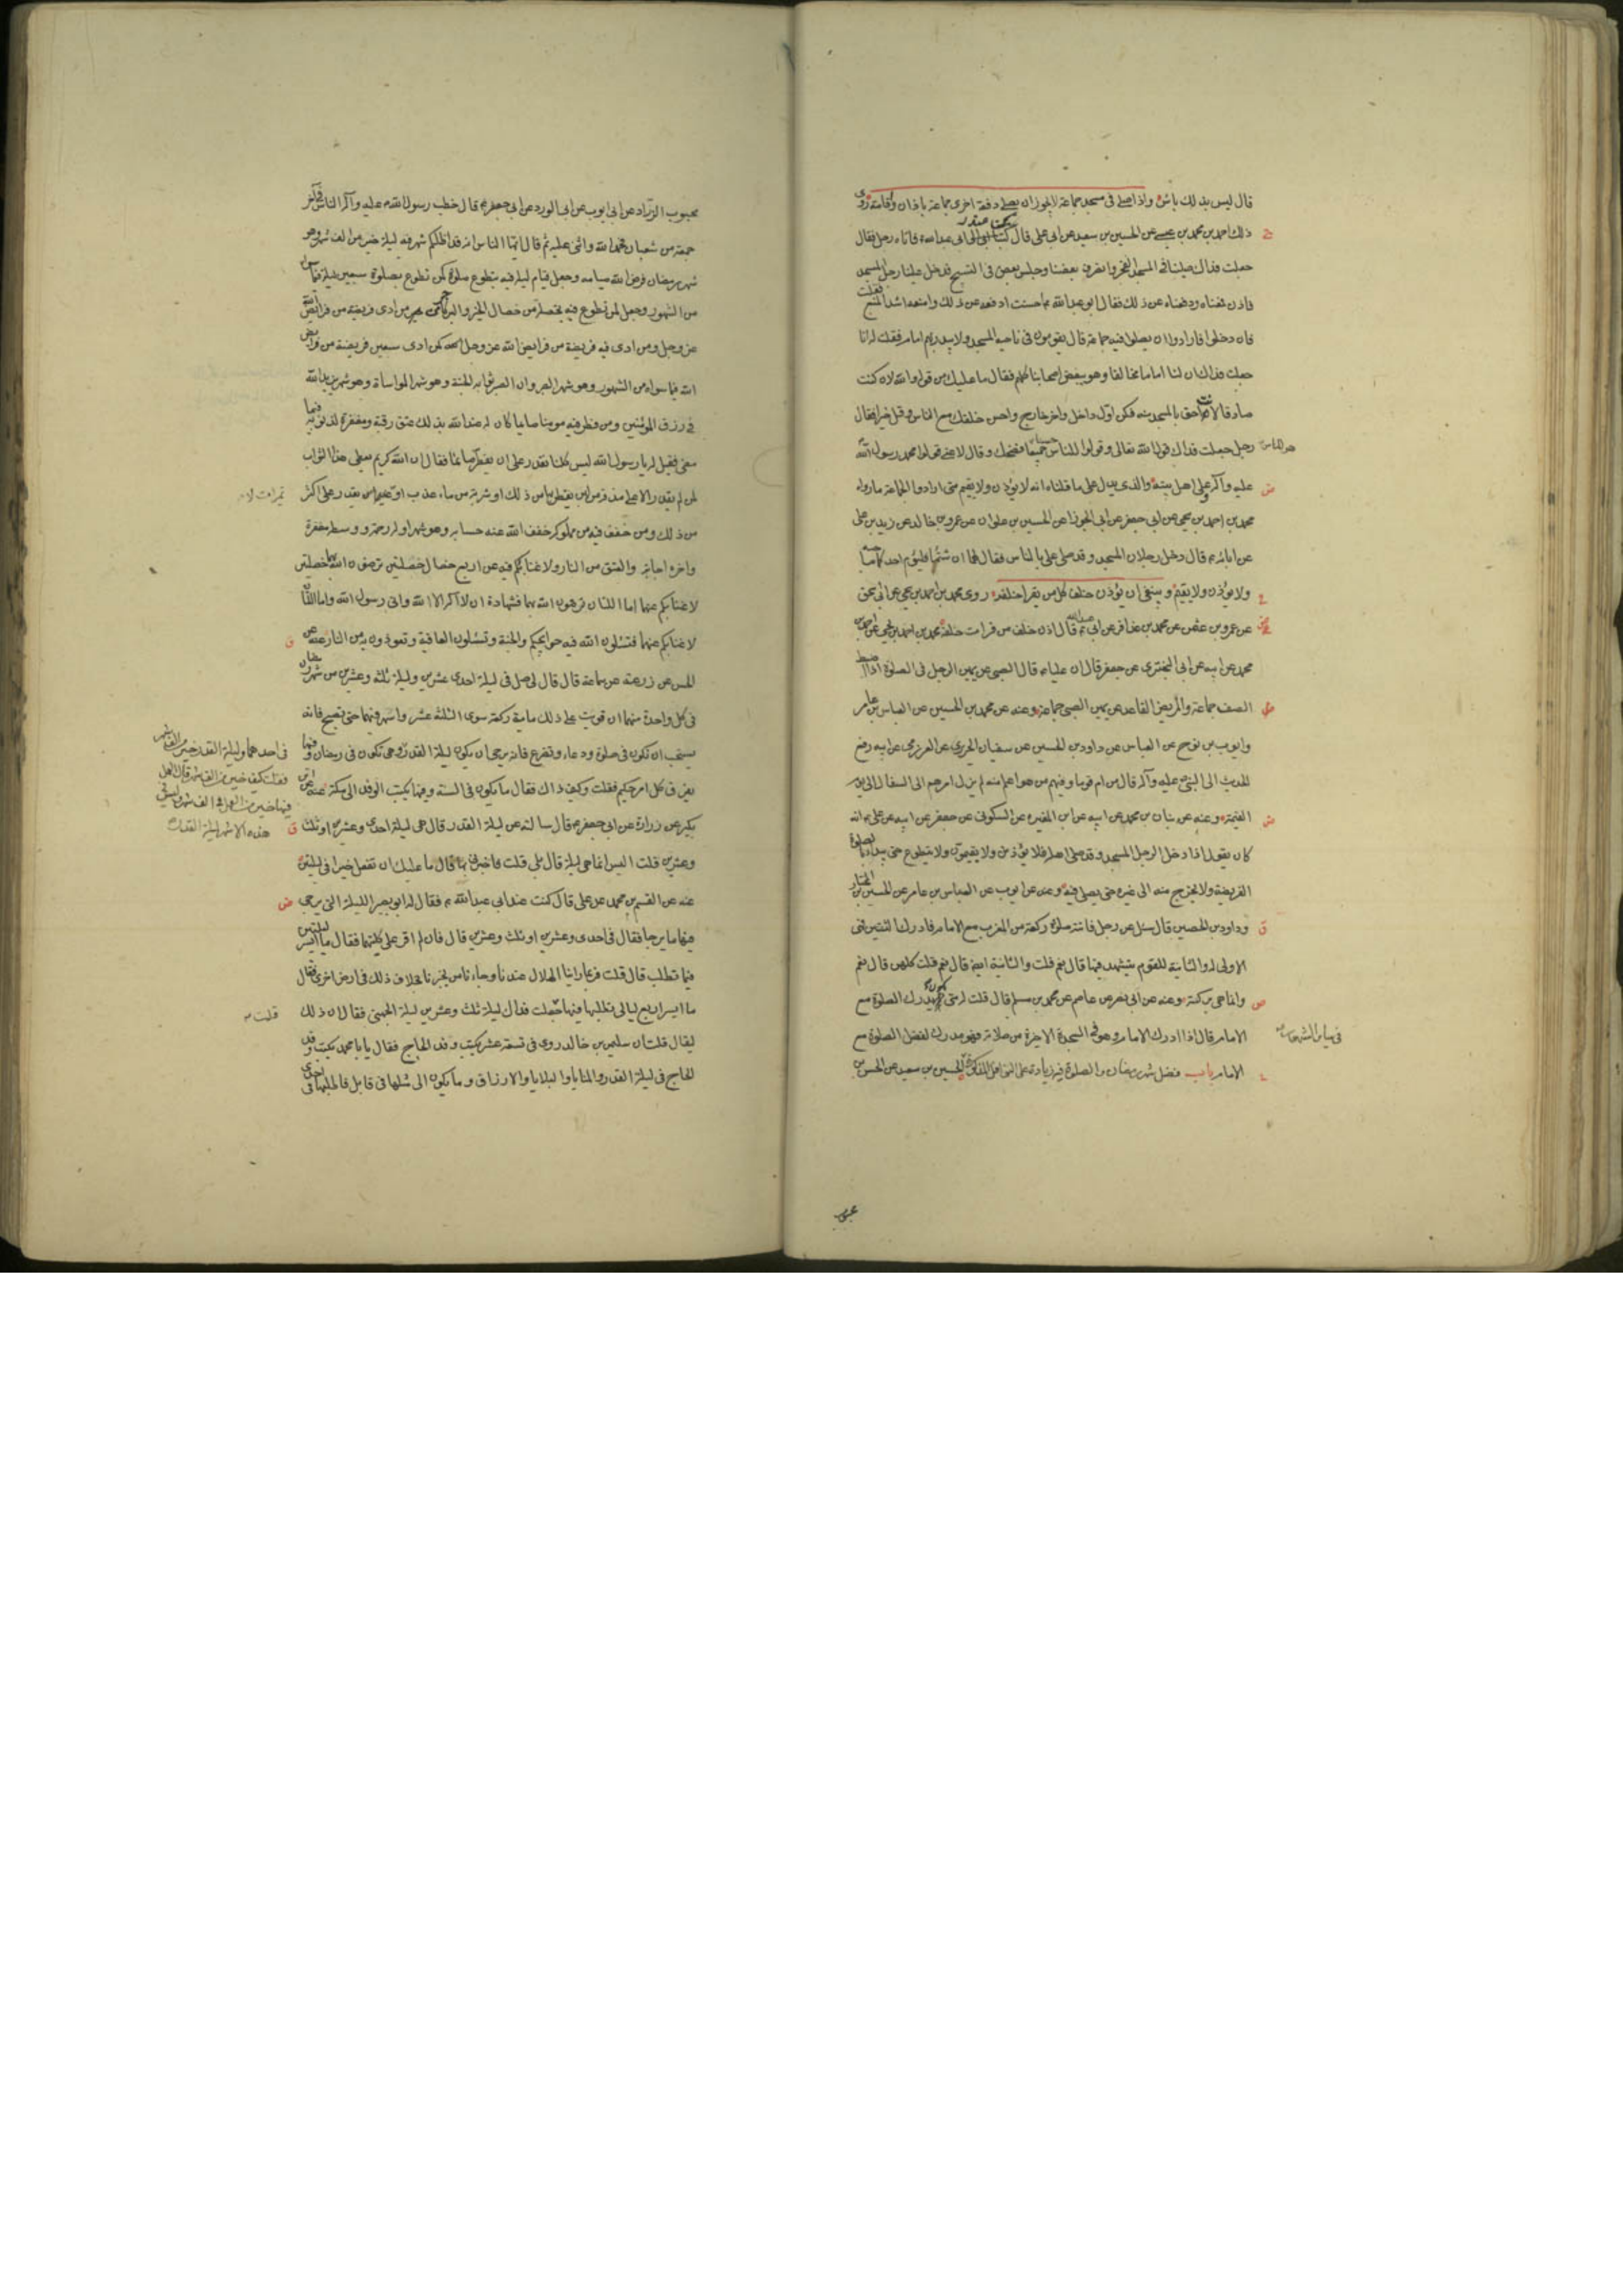 قال ليس بذلك باس واذا صلى فى مسجد جماعة لا يجوز ان يصلى دفعة اخرى جماعة باذان واقامة روى
ذلك احمد بن محمد بن عيسى عن الحسين بن سعيد عن ابى على قال كنا عند ابى عبد الله ع فاتاه رجل فقال
جعلت فداك صلينا فى المسجد الفجر وانصرف بعضنا وجلس بعض فى التسبيح فدخل علينا رجل المسجد
فاذن فمنعناه ودفعناه عن ذلك فقال ابو عبد الله ع احسنت ادفعه عن ذلك وامنعه اشد المنع فقلت
فان دخلوا فارادوا ان يصلوا فيه جماعة قال يقومون فى ناحية المسجد ولا يبدر بهم امام فقلت له انا
جعلت فداك ان لنا اماما مخالفا وهو يبغض اصحابنا كلهم فقال ما عليك من قوله والله لان كنت
صادقا لانت احق بالمسجد منه فكن اول داخل واخر خارج واحسن خلقك مع الناس وقل خيرا فقال
رجل جعلت فداك قول الله تعالى وقولوا للناس حسنا فضحك وقال لا عنى قولوا محمد رسول الله
عليه وآله وعلى اهل بيته والذى يدل على ما قلناه انه لا يؤذن ولا يقيم متى ارادوا الجماعة ما رواه
محمد بن احمد بن يحيى عن ابى جعفر عن ابى الجوزا عن الحسين بن علوان عن عمرو بن خالد عن زيد بن على
عن ابائه ع قال دخل رجلان المسجد وقد صلى على بالناس فقال لهما ان شئتما فليؤم احدكما صاحبه
ولا يؤذن ولا يقيم وينبغى ان يؤذن خلف كل من يقرا خلفه روى محمد بن احمد بن يحيى عن ابى اسحق
عن عمرو بن عثمن عن محمد بن عذافر عن ابى عبد الله ع قال اذن خلف من قرات خلفه محمد بن احمد بن يحيى عن احمد بن
محمد عن ابيه عن ابى البخترى عن جعفر قال ان عليا ع قال الصبى عن يمين الرجل فى الصلوة اذا ضبط
الصف جماعة والمريض القاعد عن يمين الصبى جماعة وعنه عن محمد بن الحسين عن العباس بن عامر
وايوب بن نوح عن العباس عن داود بن الحسين عن سفيان الحريرى عن العرزمى عن ابيه رفع
الحديث الى النبى عليه وآله قال من ام قوما وفيهم من هو اعلم منه لم يزل امرهم الى السفال الى يوم
القيمة وعنه عن بنان بن محمد عن ابيه عن ابن المغيره عن السكونى عن جعفر عن ابيه عن على ع انه
كان يقول اذا دخل الرجل المسجد وقد صلى اهله فلا يؤذنن ولا يقيمن ولا يتطوع حتى يبدا بصلوة
الفريضة ولا يخرج منه الى غيره حتى يصلى فيه وعنه عن ايوب عن العباس بن عامر عن الحسين بن المختار
وداود بن الحصين قال سئل عن رجل فاتته صلوة ركعة من المغرب مع الامام فادرك الثنتين فهى
الاولى له والثانية للقوم يتشهد فيها قال نعم قلت والثانية ايضا قال نعم قلت كلهن قال نعم
وانما هى بركة وعنه عن ابى نصر عن عاصم عن محمد بن مسلم قال قلت له متى يكون يدرك الصلوة مع
الامام قال اذا ادرك الامام وهو فى السجدة الاخيرة من صلاته فهو مدرك لفضل الصلوة مع
الامام باب فضل شهر رمضان والصلوة فيه زيادة على النوافل المذكورة الحسين بن سعيد عن الحسن بن
محبوب الزراد عن ابى ايوب عن ابى الورد عن ابى جعفر ع قال خطب رسول الله ص عليه وآله الناس فى آخر
جمعة من شعبان فحمد الله واثنى عليه ثم قال ايها الناس انه قد اظلكم شهر فيه ليلة خير من الف شهر وهو
شهر رمضان فرض الله صيامه وجعل قيام ليلة فيه بتطوع صلوة كمن تطوع بصلوة سبعين ليلة فيما سواه
من الشهور وجعل لمن تطوع فيه بخصلة من خصال الخير والبر كاجر من ادى فريضة من فرائض الله
عز وجل ومن ادى فيه فريضة من فرايض الله عز وجل كمن ادى سبعين فريضة من فرايض
الله فيما سواه من الشهور وهو شهر الصبر وان الصبر ثوابه الجنة وهو شهر المواساة وهو شهر يزيد الله
فى رزق المؤمنين ومن فطر فيه مومنا صايما كان له عند الله بذلك عتق رقبة ومغفرة لذنوبه فيما
مضى فقيل له يا رسول الله ليس كلنا نقدر على ان نفطر صائما فقال ان الله كريم يعطى هذا الثواب
لمن لم يقدر الا على مذقة من لبن يفطر بها من ذلك او شربة من ماء عذب او تميرات لا يقدر على اكثر
من ذلك ومن خفف فيه من مملوكه خفف الله عنه حسابه وهو شهر اوله رحمة ووسطه مغفرة
واخره اجابة والعتق من النار ولا غنا بكم فيه عن اربع خصال خصلتين ترضون الله بهما وخصلتين
لا غنا بكم عنهما اما اللتان ترضون الله بهما فشهادة ان لا اله الا الله وانى رسول الله واما اللتان
لا غنا بكم عنهما فتسئلون الله فيه حوايجكم والجنة وتسئلون العافية وتعوذون به من النار عنه عن
الحسن عن زرعة عن سماعة قال قال لى صل فى ليلة احدى عشرين وليلة ثلثة وعشرين من شهر رمضان
فى كل واحدة منهما ان قويت على ذلك ماية ركعة سوى الثلثة عشر واسهر فيهما حتى تصبح فانه
يستحب ان تكون فى صلوة ودعاء وتضرع فانه يرجى ان يكون ليلة القدر
يفرق كل امر حكيم فقلت وكيف ذاك فقال ما يكون فى السنة وفيها يكتب الوفد الى مكة عنه عن ابن
بكير عن زرارة عن ابى جعفر ع قال سالته عن ليلة القدر قال هى ليلة احدى وعشرين او ثلث
وعشرين قلت اليس انما هى ليلة قال بلى قلت فاخبرنى بها قال ما عليك ان تفعل خيرا فى ليلتين
عنه عن القسم بن محمد عن على قال كنت عند ابى عبد الله ع فقال له ابو بصير الليلة التى يرجى
فيها ما يرجا فقال فى احدى وعشرين او ثلث وعشرين قال فان لم اقو على كلتيهما فقال ما ايسر ليلتين
فيما تطلب قال قلت فربما راينا الهلال عندنا وجاءنا من يخبرنا بخلاف ذلك فى ارض اخرى فقال
ما ايسر اربع ليالى تطلبها فيها جعلت فداك ليلة ثلث وعشرين ليلة الجهنى فقال ان ذلك
ليقال قلت ان سليمن بن خالد روى فى تسعة عشر يكتب وفد الحاج فقال يا با محمد يكتب وفد
الحاج فى ليلة القدر والمنايا والبلايا والارزاق وما يكون الى مثلها فى قابل فاطلبها فى احدى
فى احدهما وليلة القدر خير من الف شهر
فقلت كيف خير من الف شهر قال العمل
فيها خير من العمل فى الف شهر وليس فى
هذه الاشهر ليلة القدر
قلت